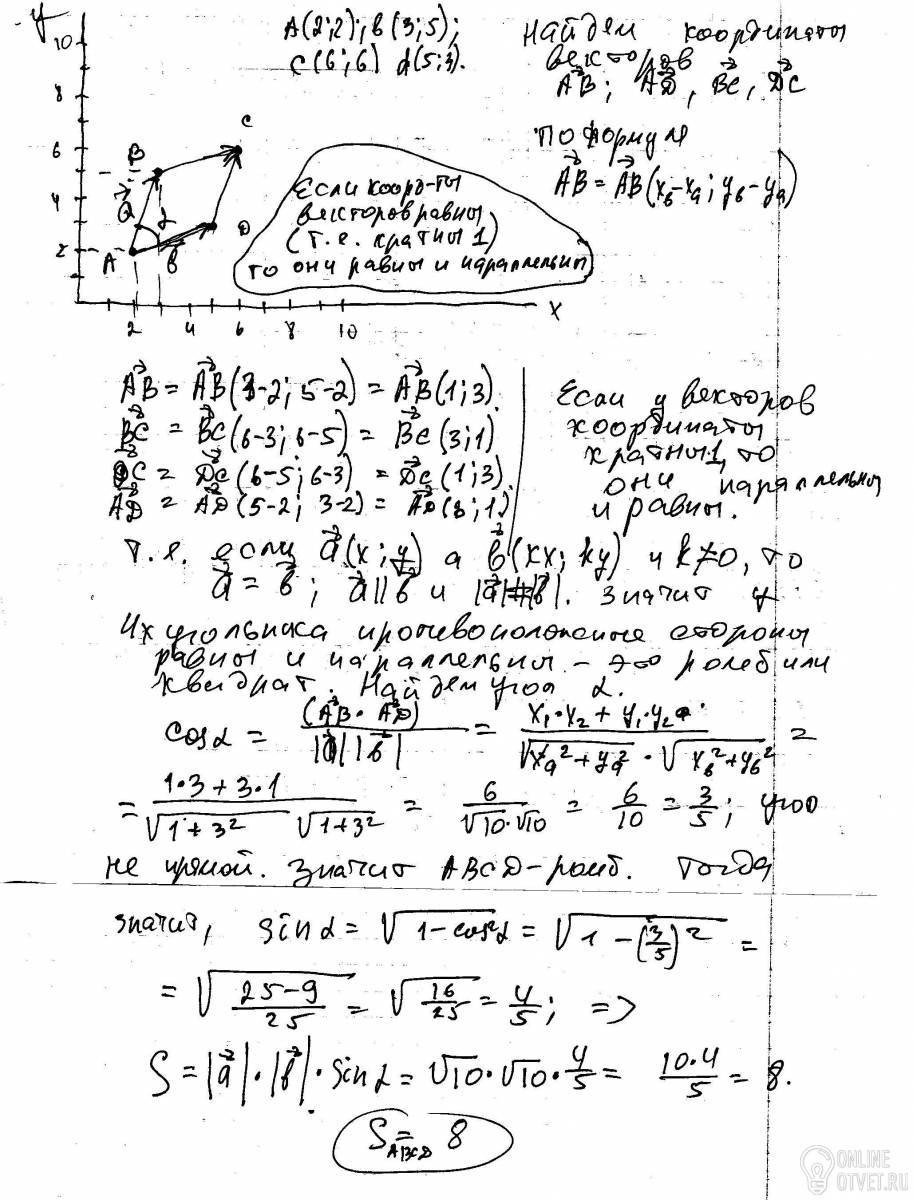 A(2;2); B(3;5);
C(6;6) d(5;3).
Найдем координаты
векторов
AB; AD, BC, DC
по формуле
AB = AB(xb-xa; yb-ya)
y
10
8
6
4
2
B
C
a
α
D
A
b
2 4 6 8 10
x
Если коорд-ты
векторов равны
(т.е. кратны 1)
то они равны и параллельны
AB = AB(3-2; 5-2) = AB(1;3).
BC = BC(6-3; 6-5) = BC(3;1)
DC = DC(6-5; 6-3) = DC(1;3).
AD = AD(5-2; 3-2) = AD(3;1)
Если у векторов
координаты
кратны 1, то
они параллельны
и равны.
т.е. если a(x;y) а b(kx; ky) и k≠0, то
a = b; a||b и |a|=|b|. Значит у
4х угольника противоположные стороны
равны и параллельны - это ромб или
квадрат. Найдем угол α.
cosα = (AB·AD) / |a||b| = x1·x2 + y1·y2 / √xa²+ya² · √xb²+yb² =
= 1·3+3·1 / √1+3² √1+3² = 6 / √10·√10 = 6/10 = 3/5; угол
не прямой. Значит ABCD-ромб. Тогда
значит, sinα = √1-cos²α = √1-(3/5)² =
= √25-9/25 = √16/25 = 4/5; =>
S = |a|·|b|·sinα = √10·√10·4/5 = 10·4/5 = 8.
S ABCD = 8
ONLINE
OTVET.RU